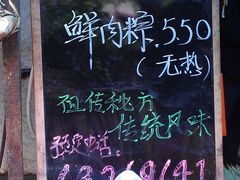 鲜肉粽.5.50
(无热)
祖传秘方
传统风味
预定电话: